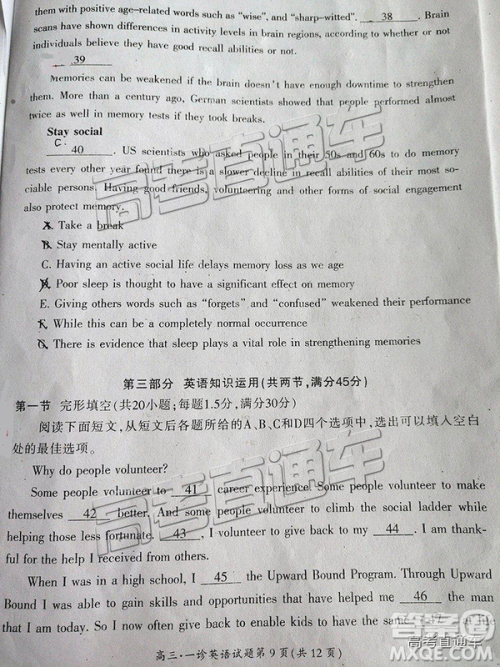 them with positive age-related words such as "wise", and "sharp-witted". 38 . Brain
scans have shown differences in activity levels in brain regions, according to whether or not
individuals believe they have good recall abilities or not.
39
Memories can be weakened if the brain doesn't have enough downtime to strengthen
them. More than a century ago, German scientists showed that people performed almost
twice as well in memory tests if they took breaks.
Stay social
C
40 . US scientists who asked people in their 50s and 60s to do memory
tests every other year found there is a slower decline in recall abilities of their most so-
ciable persons. Having good friends, volunteering and other forms of social engagement
also protect memory.
A. Take a break
B. Stay mentally active
C. Having an active social life delays memory loss as we age
D. Poor sleep is thought to have a significant effect on memory
E. Giving others words such as "forgets" and "confused" weakened their performance
F. While this can be a completely normal occurrence
G. There is evidence that sleep plays a vital role in strengthening memories
第三部分 英语知识运用(共两节,满分45分)
第一节 完形填空(共20小题;每题1.5分,满分30分)
阅读下面短文,从短文后各题所给的A、B、C和D四个选项中,选出可以填入空白
处的最佳选项。
Why do people volunteer?
Some people volunteer to 41 career experience. Some people volunteer to make
themselves 42 better. And some people volunteer to climb the social ladder while
helping those less fortunate. 43 , I volunteer to give back to my 44 . I am thank-
ful for the help I received from others.
When I was in a high school, I 45 the Upward Bound Program. Through Upward
Bound I was able to gain skills and opportunities that have helped me 46 the man
that I am today. So I now often give back to enable kids 47 life opportunities
高三·一诊英语试题第9页(共12页)
高考直通车
高考直通车
高考直通车